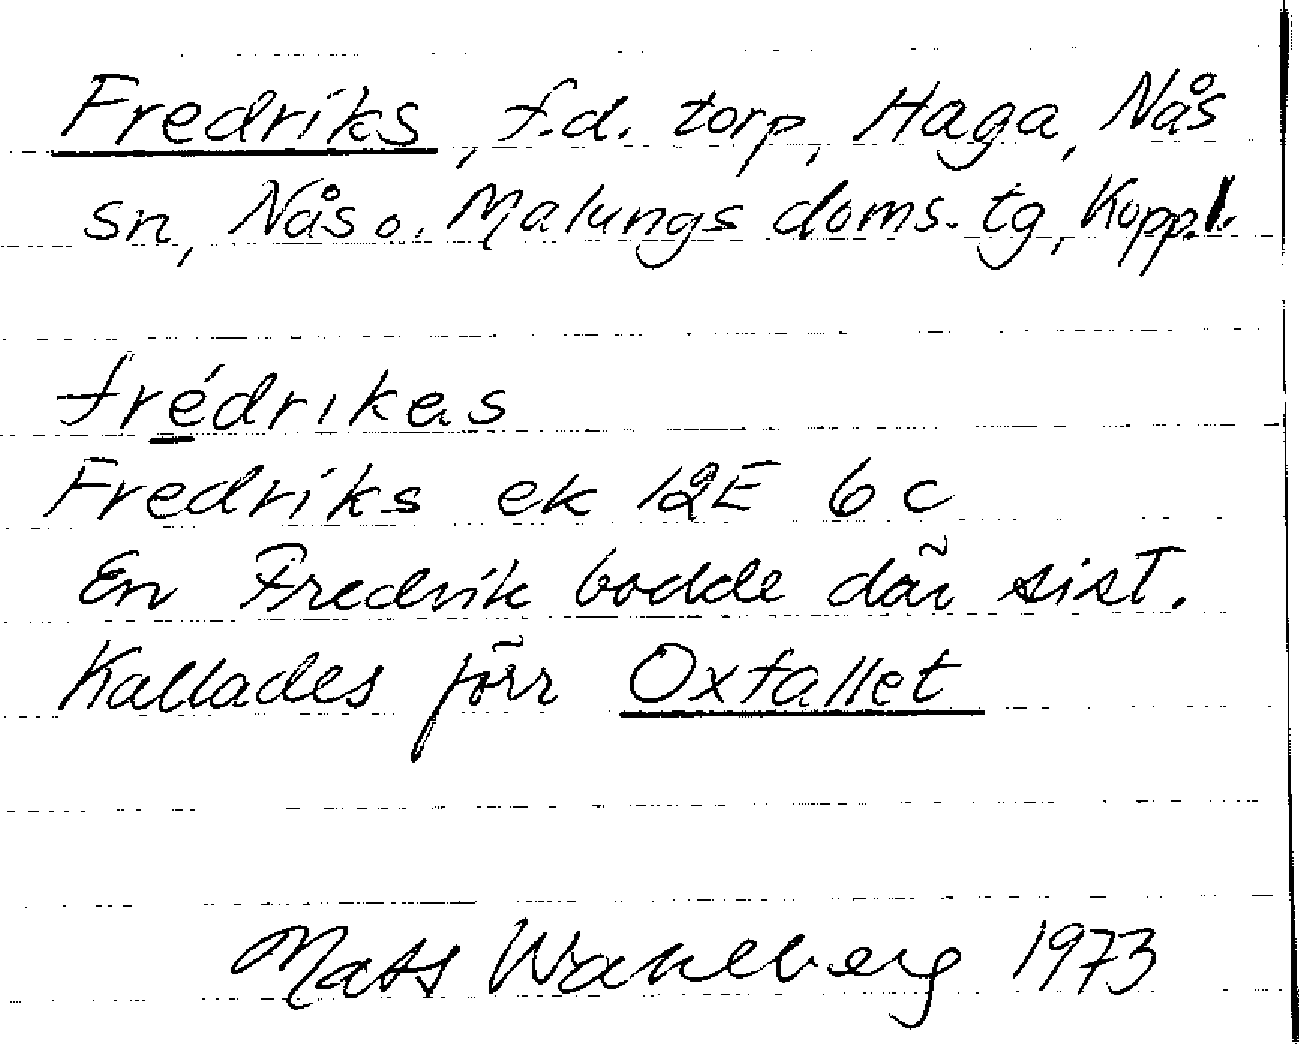 Fredriks, f.d. torp, Haga, Nås
sn, Nås o. Malungs doms. tg, Kopp.l.
frédrikas
Fredriks ek 12E 6c
En Fredrik bodde där sist.
Kallades förr Oxfallet
Mats Wahlberg 1973